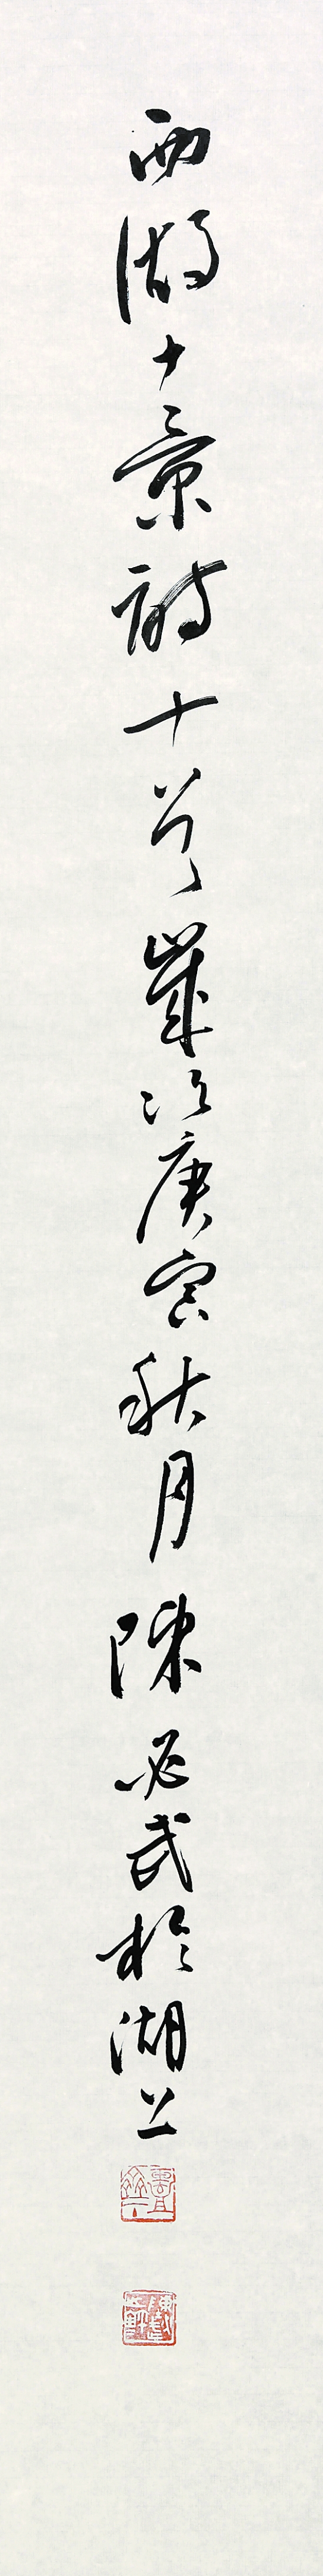 西湖十景詩十首歲次庚寅秋月陳必武於湖上